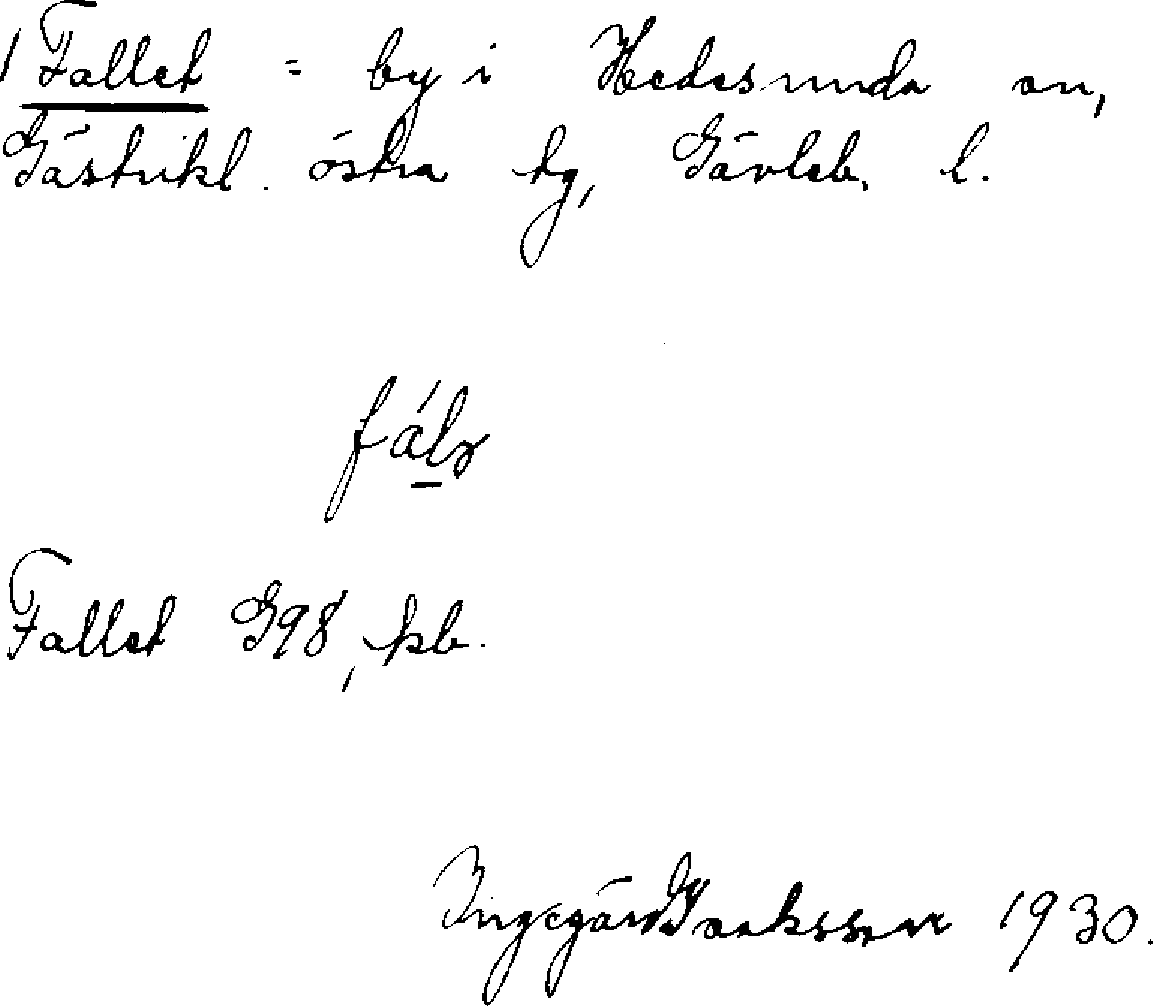 1 Fallet = by i Hedesunda sn,
Gästrikl. östra tg, Gävleb. l.
fálɂ
Fallet G98, kb.
Ingegärd Isaksson 1930.